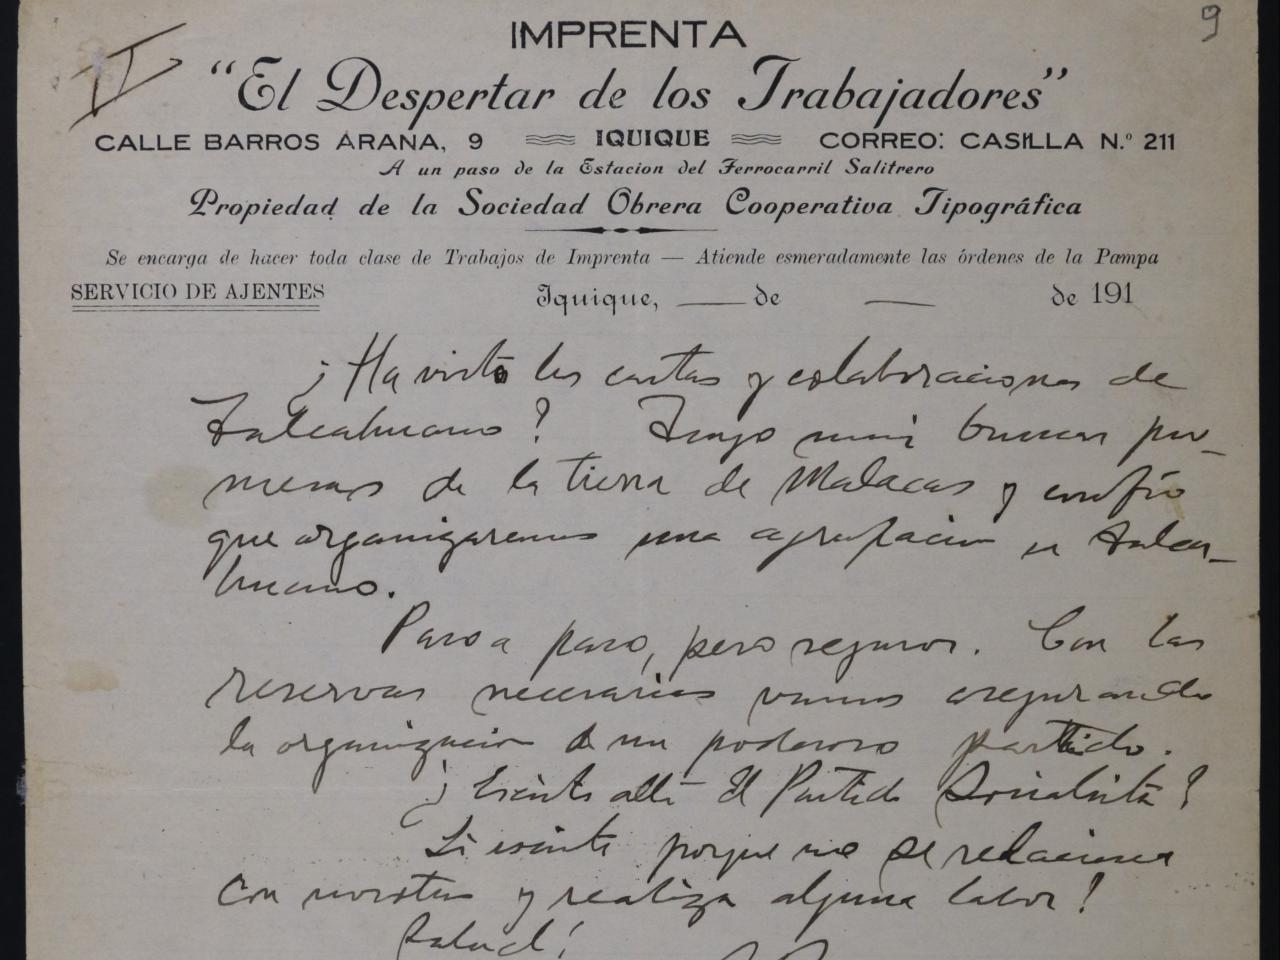 9
II
IMPRENTA
“El Despertar de los Trabajadores”
CALLE BARROS ARANA, 9 IQUIQUE CORREO: CASILLA N.º 211
A un paso de la Estacion del Ferrocarril Salitrero
Propiedad de la Sociedad Obrera Cooperativa Tipográfica
Se encarga de hacer toda clase de Trabajos de Imprenta — Atiende esmeradamente las órdenes de la Pampa
SERVICIO DE AJENTES Iquique, — de — de 191
¿Ha visto las cartas y colaboraciones de
Talcahuano? Tengo mui buenas pro-
mesas de la tierra de Malacas y confío
que organizaremos una agrupacion en Talca-
huano.
Paso a paso, pero seguros. Con las
reservas necesarias vamos asegurando
la organizacion de un poderoso partido.
¿Existe allá el Partido Socialista?
Si existe porque no se relaciona
con nosotros y realiza alguna labor?
Salud!